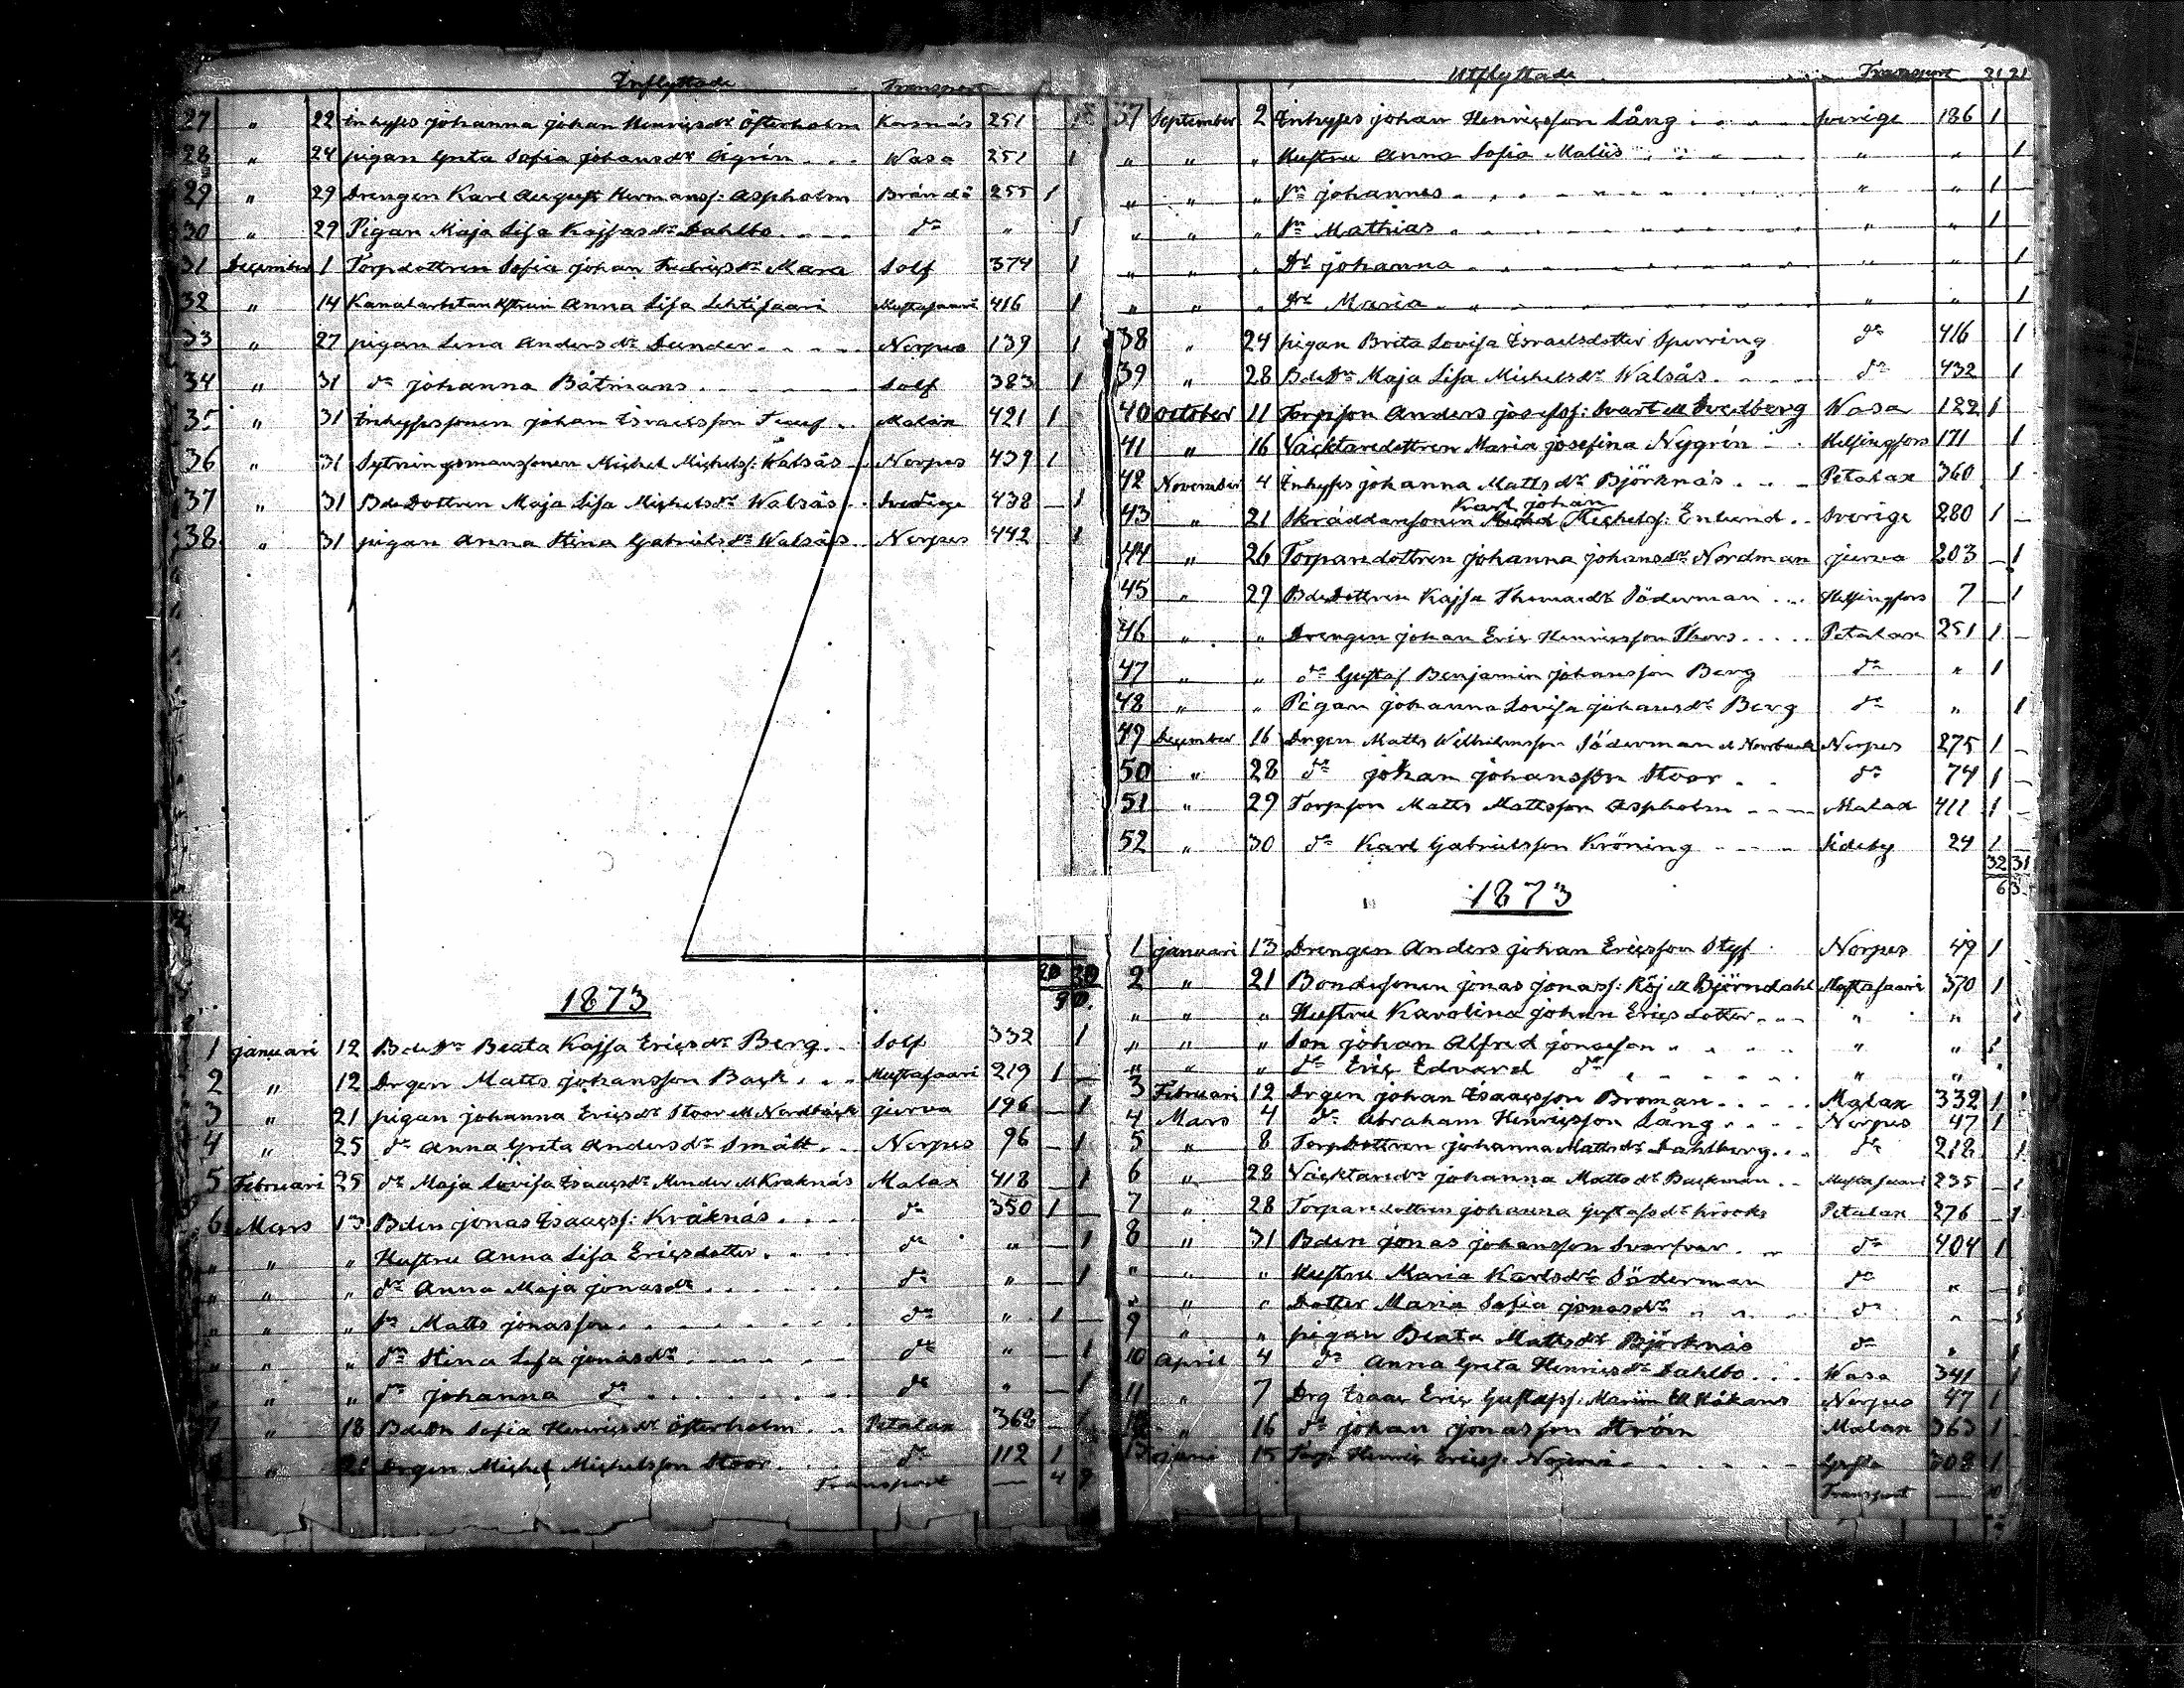 Inflyttade Transport
27 " 22 Inhyses Johanna Johan Henricsdr Österholm Korsnäs 251 1
28 " 24 pigan Greta Sofia Johansdr Ågrén Wasa 251 1
29 " 29 Drengen Karl August Hermanss: Aspholm Brändö 255 1
30 " 29 Pigan Maja Lisa Kajsasdr Dahlbo do " 1
31 December 1 Torpdottren Sofia Johan Fredricsdr Mara Solf 374 1
32 " 14 Anna Lisa Lehtisaari Mustasaari 416 1
33 " 27 pigan Lena Andersdr Dunder Nerpes 139 1
34 " 31 do Johanna Båtmans Solf 383 1
35 " 31 Inhysessonen Johan Israelsson Malax 421 1
36 " 31 Sytningsmanssonen Michel Michelss: Walsås Nerpes 439 1
37 " 31 BdeDottren Maja Lisa Michelsdr Walsås Sverige 438 1
38 " 31 pigan Anna Stina Gabrielsdr Walsås Nerpes 442 1
1873
1 Januari 12 BdeDr Beata Kajsa Ericsdr Berg Solf 332 1
2 " 12 Drgen Matts Johansson Back Mustasaari 219 1
3 " 21 pigan Johanna Ericsdr Stoor ell Nordbäck Jurva 196 1
4 " 25 do Anna Greta Andersdr Smått Nerpes 96 1
5 Februari 25 do Maja Lovisa Isaacsdr Munder ell Kråknäs Malax 418 1
6 Mars 13 Bden Jonas Isaacss: Kråknäs do 350 1
" " " Hustru Anna Lisa Ericsdotter do " 1
" " " dr Anna Maja Jonasdr do " 1
" " " sn Matts Jonasson do " 1
" " " dr Stina Lisa Jonasdr do " 1
" " " dr Johanna do do " 1
7 " 18 BdeDr Sofia Henricsdr Österholm Petalax 368 1
8 " Drgen Michel Michelsson Stoor do 112 1
Transport — 4 9
Utflyttade Transport 21 21
37 September 2 Inhyses Johan Henricsson Lång Sverige 186 1
" " " Hustru Anna Sofia Matts " " 1
" " " sn Johannes " " 1
" " " sn Mathias " " 1
" " " Dr Johanna " " 1
" " " Dr Maria " " 1
38 " 24 pigan Brita Lovisa Israelsdotter Sperring do 416 1
39 " 28 BdeDr Maja Lisa Michelsdr Walsås do 432 1
40 October 11 Torpson Anders Josefss: Svart ell Svedberg Wasa 122 1
41 " 16 Väcktaredottren Maria Josefina Nygrén Helsingfors 171 1
42 November 4 Inhyses Johanna Mattsdr Björknäs Petalax 360 1
Karl Johan
43 " 21 Skräddarsonen Michelss: Enlund Sverige 280 1
44 " 26 Torparedottren Johanna Johansdr Nordman Jurva 203 1
45 " 29 BdeDottren Kajsa Thomasdr Söderman Helsingfors 7 1
46 " " Drengen Johan Eric Henricsson Thors Petalax 251 1
47 " " do Gustaf Benjamin Johansson Berg do " 1
48 " " Pigan Johanna Lovisa Johansdr Berg do " 1
49 December 16 Drgen Matts Wilhelmsson Söderman ell Norrback Nerpes 275 1
50 " 28 do Johan Johansson Stoor do 74 1
51 " 29 Torpson Matts Mattsson Aspholm Malax 411 1
52 " 30 do Karl Gabrielsson Kröning Sideby 24 1
32 31
63
1873
1 Januari 13 Drengen Anders Johan Ericsson Styf Nerpes 49 1
2 " 21 Bondesonen Jonas Jonass: Röj ell Björndahl Mustasaari 370 1
" " " Hustru Karolina Johan Ericsdotter " " 1
" " " Son Johan Alfred Jonasson " " 1
" " " do Eric Edvard do " "
3 Februari 12 Drgen Johan Isaacsson Broman Malax 332 1
4 Mars 4 do Abraham Henricsson Lång Nerpes 47 1
5 " 8 Torpdottren Johanna Mattsdr Dahlberg do 212 1
6 " 28 Väcktaredr Johanna Mattsdr Backman Mustasaari 235 1
7 " 28 Torparedottren Johanna Gustafsdr Krooks Petalax 276 1
8 " 31 Bden Jonas Johansson Svarfvar do 404 1
" " " Hustru Maria Karlsdr Söderman do "
" " " Dotter Maria Sofia Jonasdr do "
9 " " pigan Beata Mattsdr Björknäs do " 1
10 April 4 do Anna Greta Henricsdr Dahlbo Wasa 341 1
11 " 7 Drg Isaac Eric Gustafss: ell Håkans Nerpes 47 1
12 " 16 do Johan Jonasson Ström Malax 363 1
13 Juni 15 Torp Henric Ericss: 308 1
Transport —